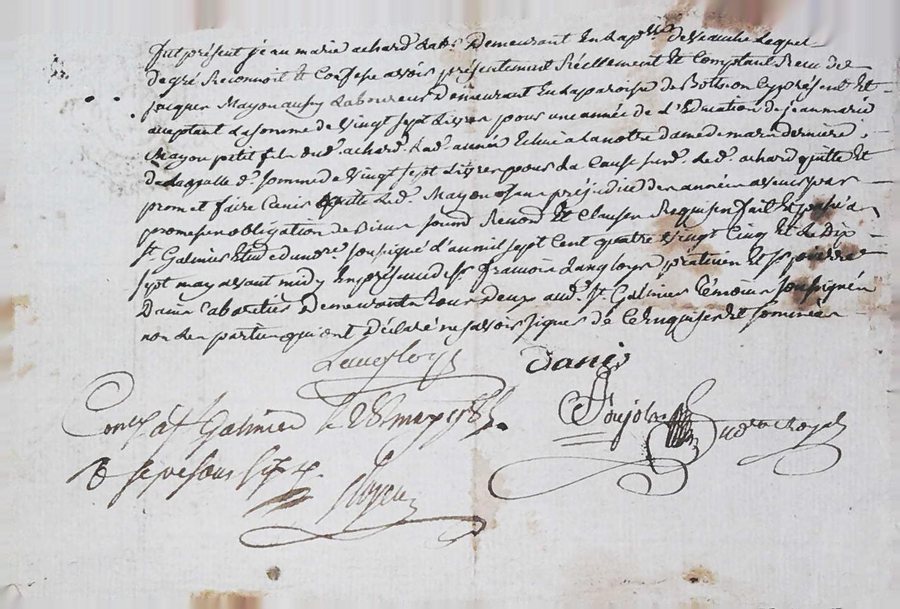 fut présent jean marie achard lab.r Demeurant En la par.sse de Veauche Lequel
de gré Reconnoit Et Confesse avoir présentement Réellement Et Comptant Receu de
jacques Mayon aussy Laboureur Demeurant En la paroisse de Cy présent Et
aceptant La somme de Vingt sept Livres pour une année de L'Education de jean marié
Mayon petit fils dud. achard, Lad. année Echue a la notre dame de mars derniere,
de Laquelle d. somme de Vingt sept Livres pour La Cause susd. Led. achard quitte Et
promet faire tenir quitte Led. Mayon sans préjudice des années a venir par
promesses obligation de Biens soumd Renond Et Clauses Requises fait Et passé a
St Galmier Etude du no.re soussigné L'an mil sept Cent quatre Vingt Cinq Et Le Dix
sept may avant midy En présence de Sr francois Langloys praticien Et Sr pierre
Danis Cabaretier Demeurants tous deux aud. St Galmier témoins soussignés
non Les parties qui ont Déclaré ne savoir signer de Ce Enquises Et sommées
Langloys Danis
Pujol
Cont.lé a St Galmier Le 28 may 1785.
R